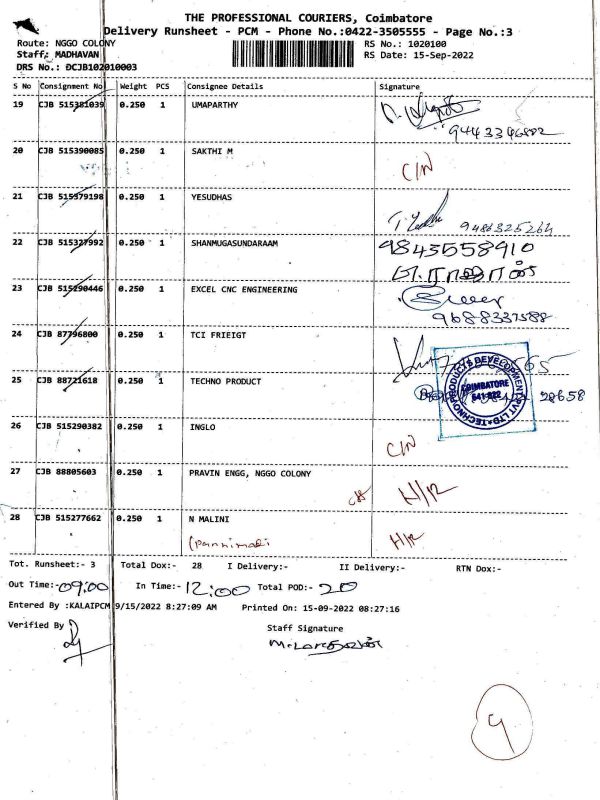 THE PROFESSIONAL COURIERS, Coimbatore
Delivery Runsheet - PCM - Phone No.:0422-3505555 - Page No.:3
Route: NGGO COLONY
RS No.: 1020100
Staff: MADHAVAN
RS Date: 15-Sep-2022
DRS No.: DCJB102010003
S No Consignment No Weight PCS Consignee Details Signature
19 CJB 515381039 0.250 1 UMAPARTHY
9443346882
20 CJB 515390085 0.250 1 SAKTHI M
C/N
21 CJB 515379198 0.250 1 YESUDHAS
9486325264
22 CJB 515327992 0.250 1 SHANMUGASUNDARAAM 9843558910
23 CJB 515290446 0.250 1 EXCEL CNC ENGINEERING
9688337588
24 CJB 87796800 0.250 1 TCI FRIEIGT
25 CJB 88721618 0.250 1 TECHNO PRODUCT
TECHNO PRODUCTS DEVELOPMENT PVT LTD
COIMBATORE
641 022
28658
26 CJB 515290382 0.250 1 INGLO
C/N
27 CJB 88805603 0.250 1 PRAVIN ENGG, NGGO COLONY
H/R
28 CJB 515277662 0.250 1 N MALINI
H/R
Tot. Runsheet:- 3 Total Dox:- 28 I Delivery:- II Delivery:- RTN Dox:-
Out Time:- 09:00 In Time:- 12:00 Total POD:- 20
Entered By :KALAIPCM 9/15/2022 8:27:09 AM Printed On: 15-09-2022 08:27:16
Verified By
Staff Signature
9